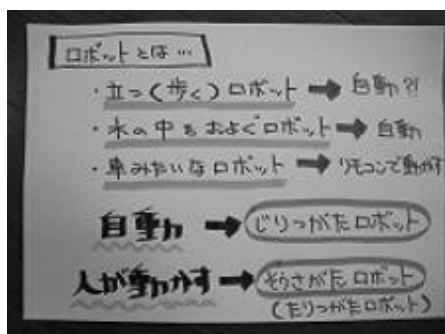 ロボットとは…
・立つ(歩く)ロボット➡自動?!
・水の中をおよぐロボット➡自動
・車みたいなロボット→リモコンで動かす
自動➡じりつがたロボット
人が動かす➡そうさがたロボット
(たりつがたロボット)